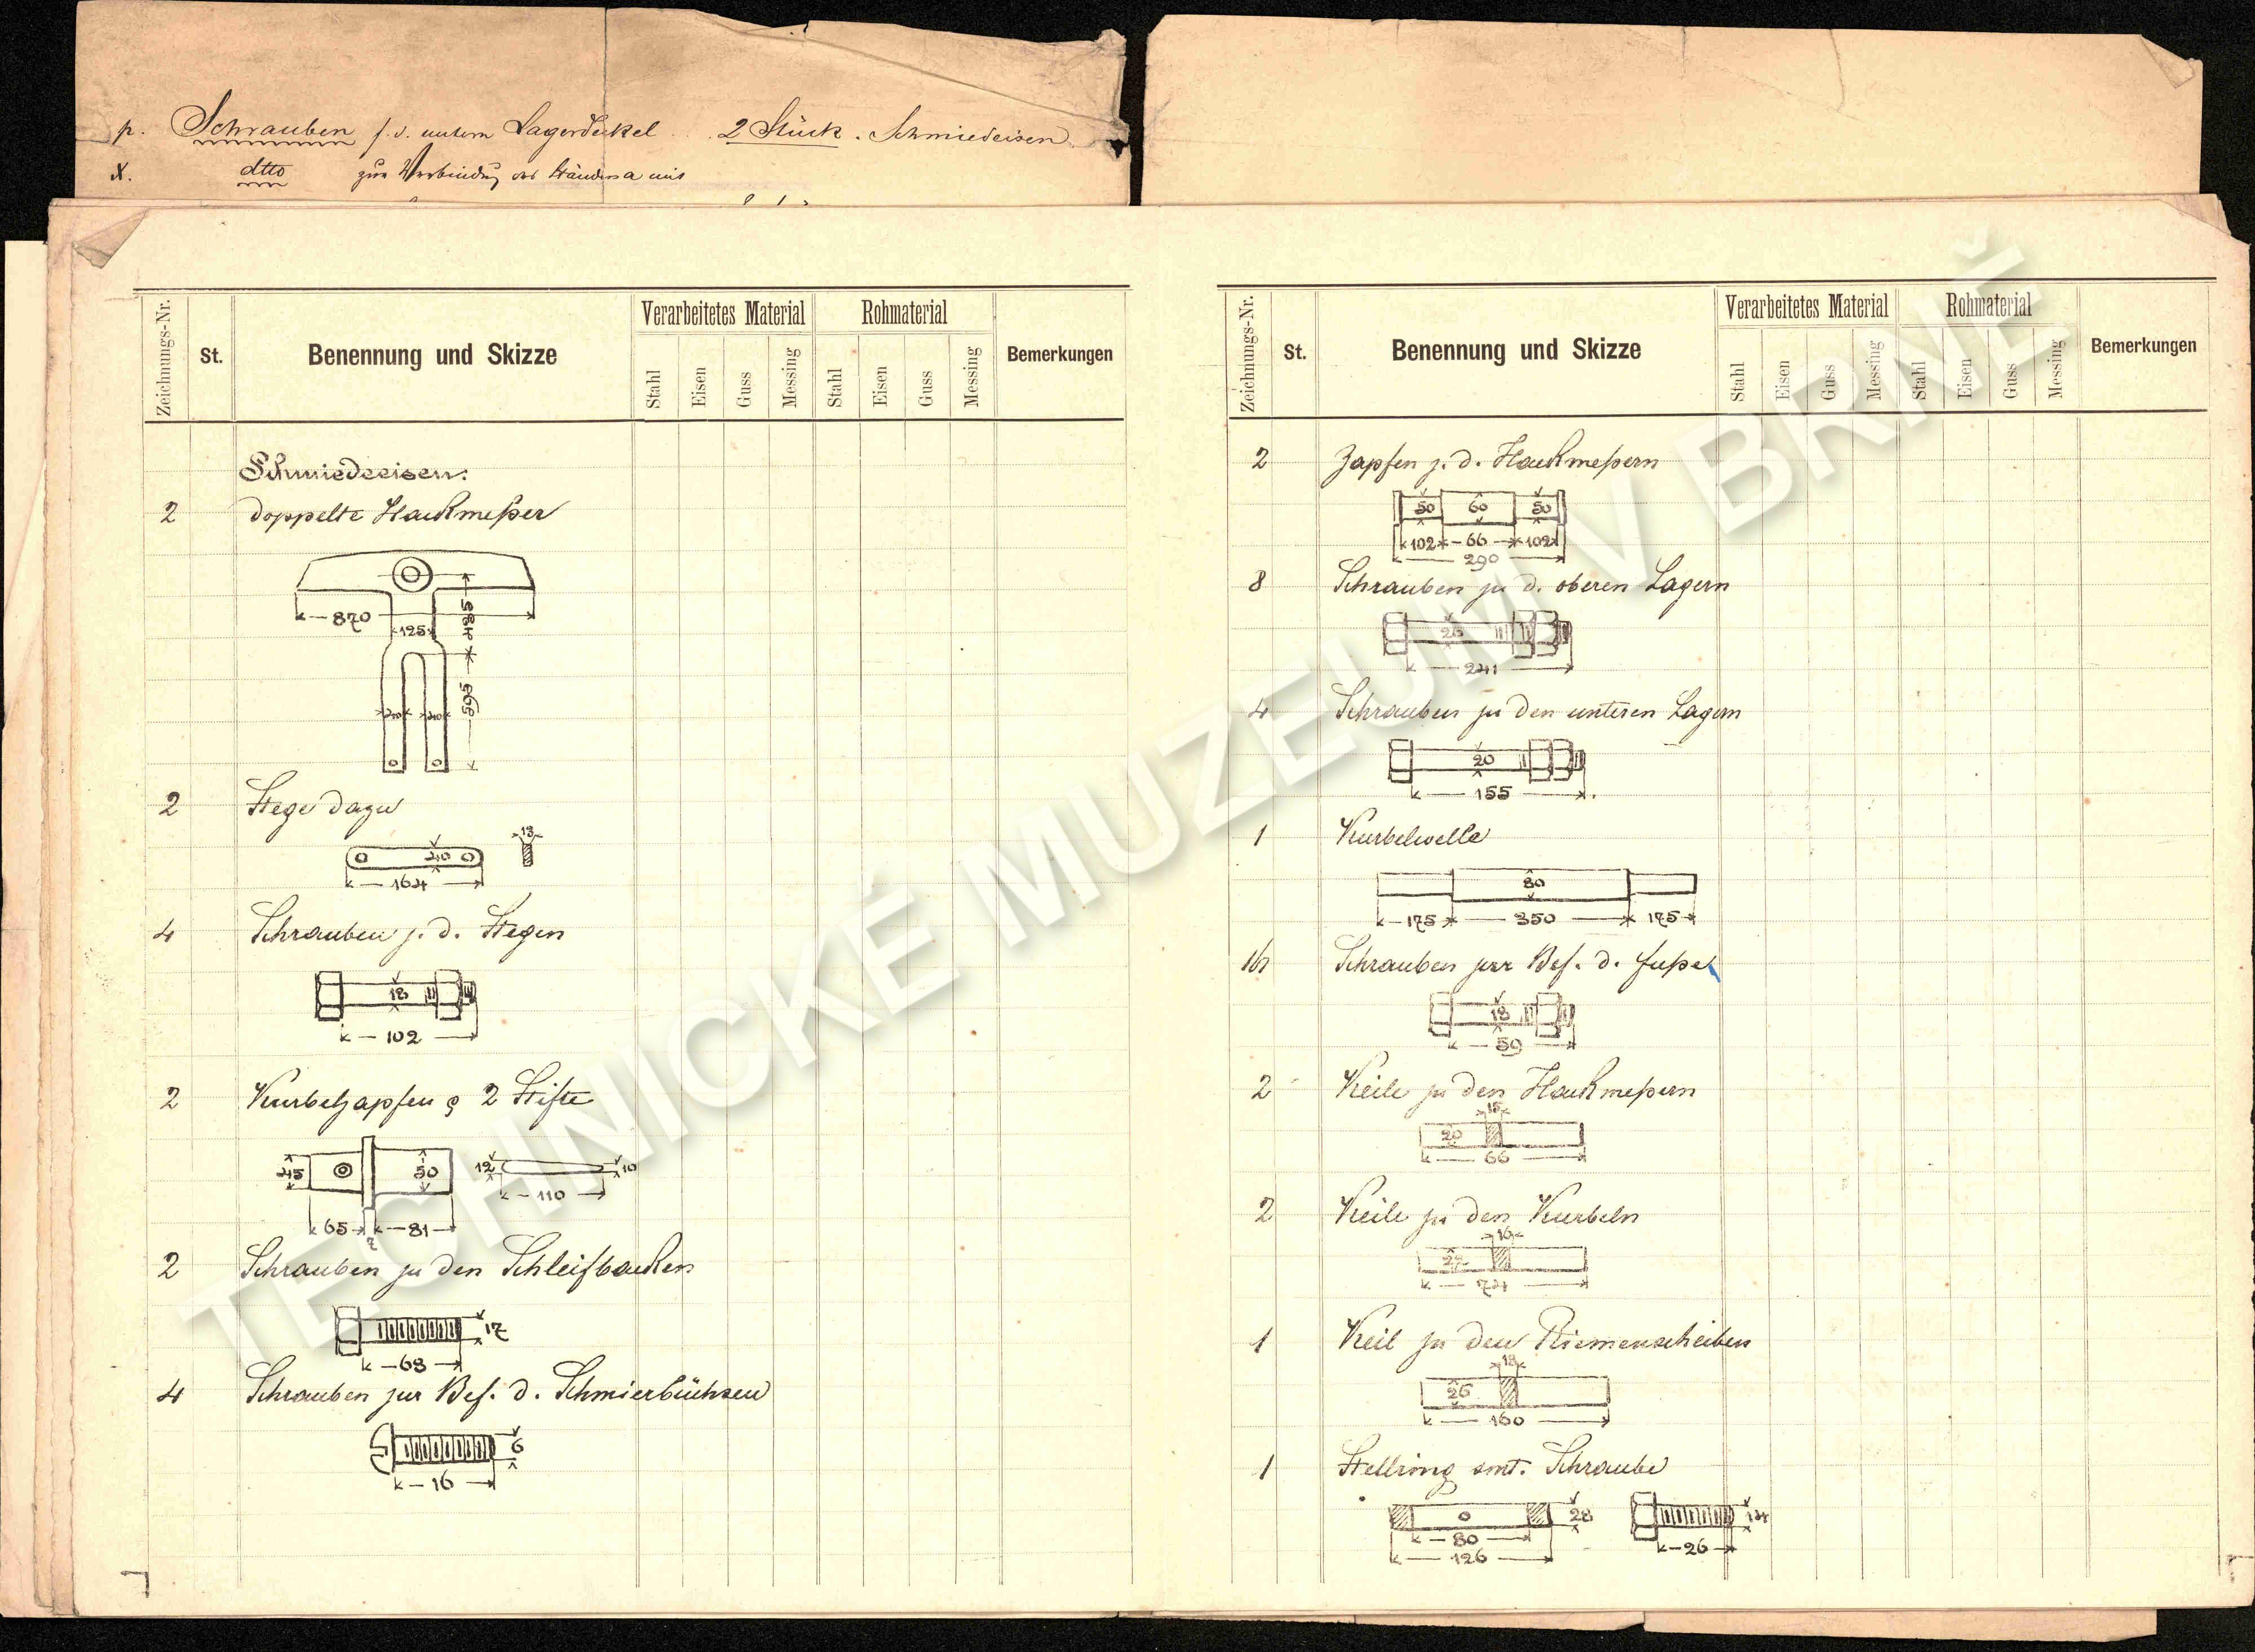 p. Schrauben f. d. untern Lagerdeckel . . 2 Stück . Schmiedeisen
x. dtto zur Verbindung des Ständers a mit
Zeichnungs-Nr.
St.
Benennung und Skizze
Verarbeitetes Material
Rohmaterial
Bemerkungen
Stahl Eisen Guss Messing Stahl Eisen Guss Messing
Schmiedeeisen:
2 doppelte Hackmeßer
870
125
485
40 40
595
2 Stege dazu
13
40
164
4 Schrauben z. d. Stegen
18
102
2 Kurbelzapfen & 2 Stifte
45 50 12 10
110
65 81
7
2 Schrauben zu den Schleifbacken
17
68
4 Schrauben zur Bef. d. Schmierbüchsen
6
16
Zeichnungs-Nr.
St.
Benennung und Skizze
Verarbeitetes Material
Rohmaterial
Bemerkungen
Stahl Eisen Guss Messing Stahl Eisen Guss Messing
2 Zapfen z. d. Hackmeßern
50 60 50
102 66 102
290
8 Schrauben zu d. oberen Lagern
26
241
4 Schrauben zu den unteren Lagern
20
155
1 Kurbelwelle
80
175 350 175
16 Schrauben zur Bef. d. Fuße
18
59
2 Keile zu den Hackmeßern
15
20
66
2 Keile zu den Kurbeln
16
74
1 Keil zu den Riemenscheiben
18
26
160
1 Stellring smt. Schraube
28 14
80 26
126
TECHNICKÉ MUZEUM V BRNĚ